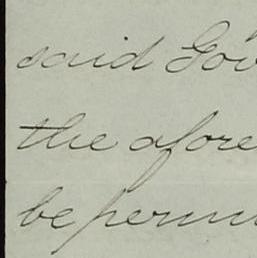 said Gov
the afore
be perm